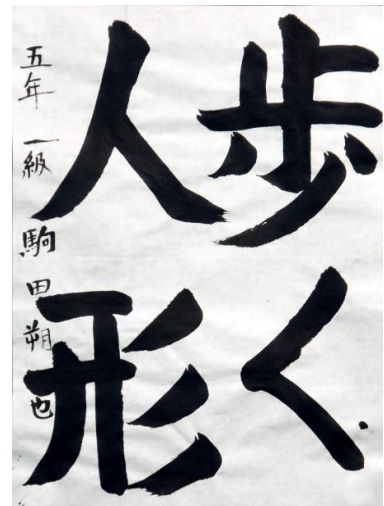 歩く
人形
五年 一級 駒田朔也